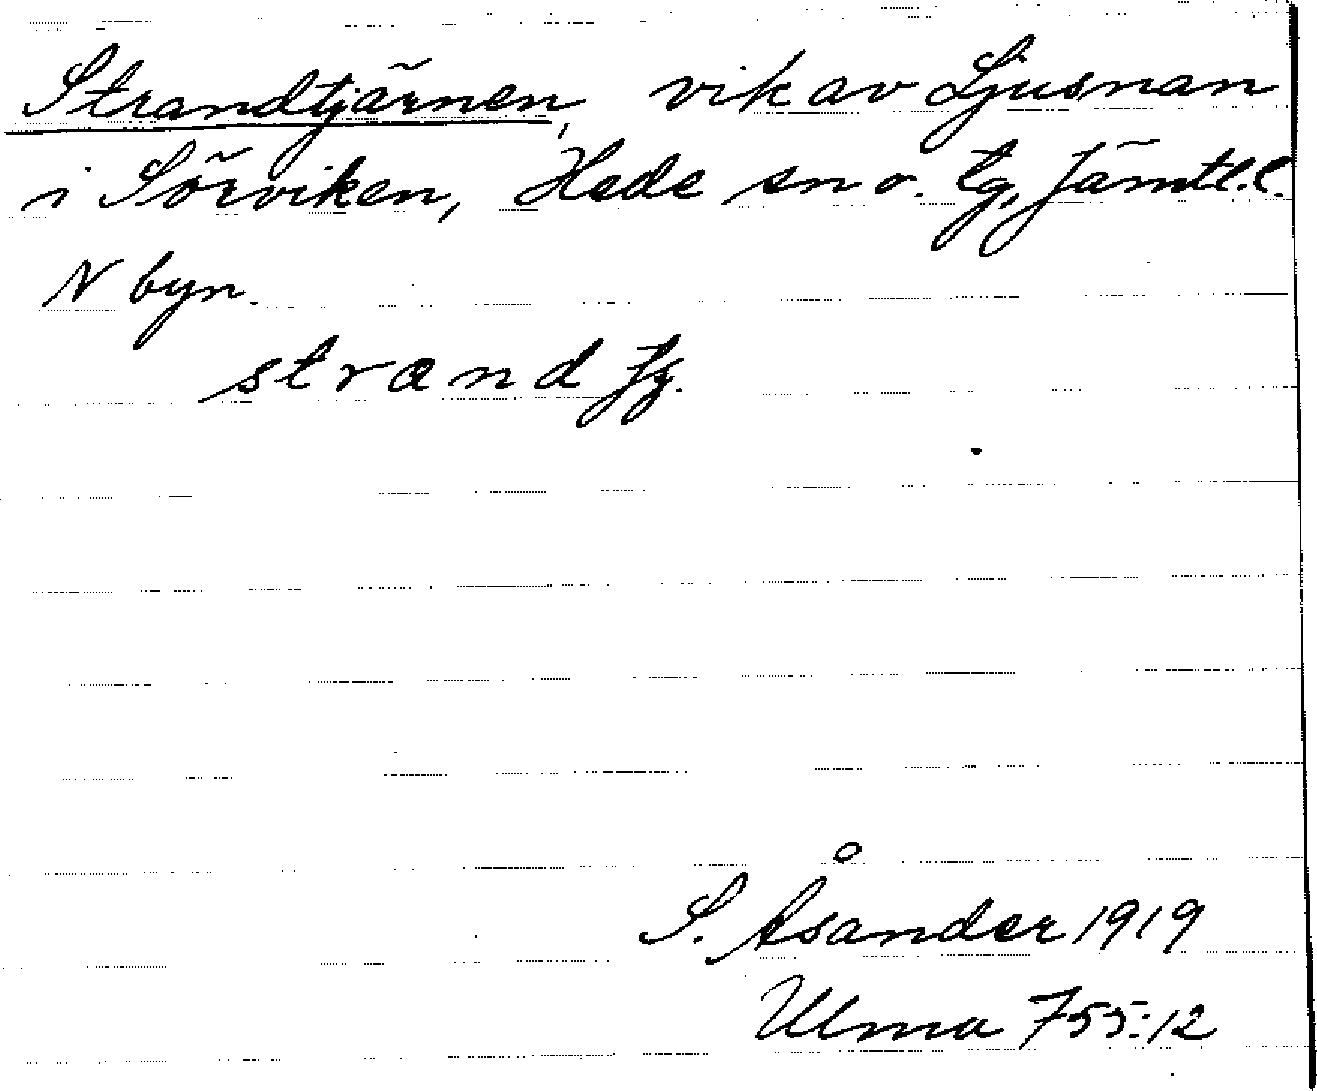 Strandtjärnen, vik av Ljusnan
i Sörviken, Hede sn o. tg, Jämtl. l.
N byn.
strand
S. Åsander 1919
Ulma 755:12